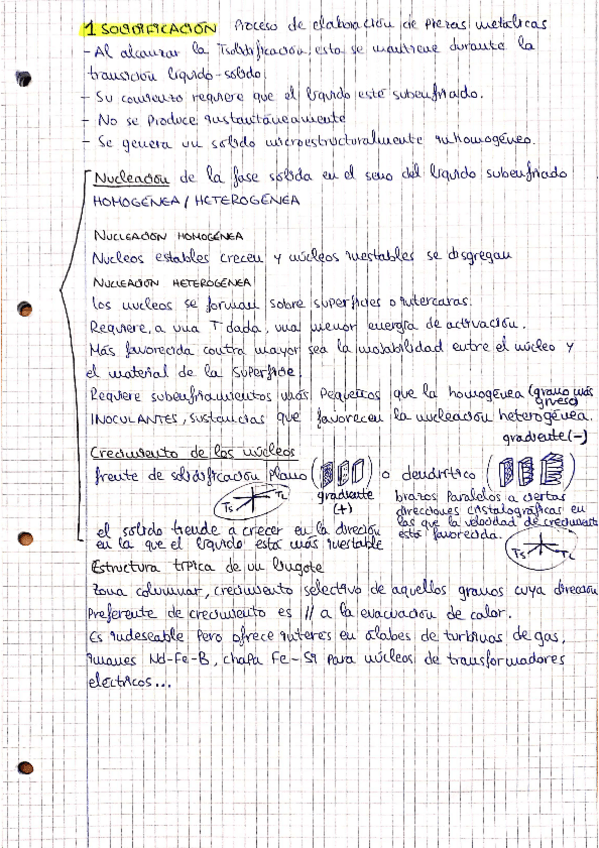 1 SOLIDIFICACIÓN Proceso de elaboración de piezas metálicas
- Al alcanzar la Tsolidificación, esta se mantiene durante la
transición líquido-sólido.
- Su comienzo requiere que el líquido esté subenfriado.
- No se produce instantáneamente
- Se genera un sólido microestructuralmente inhomogéneo.
Nucleación de la fase sólida en el seno del líquido subenfriado
HOMOGÉNEA / HETEROGÉNEA
NUCLEACIÓN HOMOGÉNEA
Núcleos estables crecen y núcleos inestables se disgregan
NUCLEACIÓN HETEROGÉNEA
Los núcleos se forman sobre superficies o intercaras.
Requiere, a una T dada, una menor energía de activación.
Más favorecida contra mayor sea la mojabilidad entre el núcleo y
el material de la superficie.
Requiere subenfriamientos más pequeños que la homogénea (grano más
grueso)
INOCULANTES, sustancias que favorecen la nucleación heterogénea.
gradiente (-)
Crecimiento de los núcleos
frente de solidificación plano ( ) o dendrítico ( )
gradiente
(+)
Ts TL
brazos paralelos a ciertas
direcciones cristalográficas en
las que la velocidad de crecimiento
está favorecida.
el sólido tiende a crecer en la direción
en la que el líquido está más inestable
Ts TL
Estructura típica de un lingote
Zona columnar, crecimiento selectivo de aquellos granos cuya dirección
preferente de crecimiento es // a la evacuación de calor.
Es indeseable pero ofrece interés en álabes de turbinas de gas,
imanes Nd-Fe-B, chapa Fe-Si para núcleos de transformadores
eléctricos...